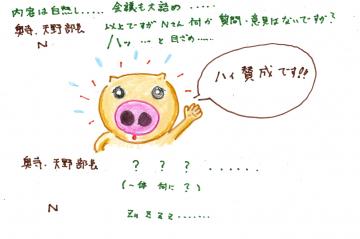 内容は白熱し..... 会議も大詰め .....
奥寺・天野部長 以上ですが Nさん 何か 質問・意見はないですか?
N ハッ … と目ざめ.....
ハイ 賛成です!!
奥寺・天野部長 ? ? ? ......
(一体 何に ?)
N Zzz.......